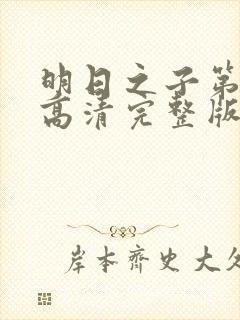 明日之子第
高清完整版
岸本齐史大久